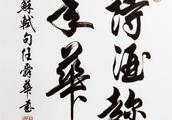 詩酒趁
年華
蘇軾句任華書